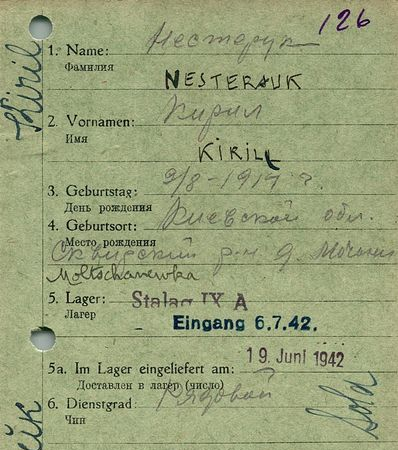 126
Kiril
1. Name: Нестерук
Фамилия
NESTERAUK
2. Vornamen: Кирил
Имя
KIRILL
3. Geburtstag: 9/8-1914 г.
День рождения
4. Geburtsort: Киевской обл.
Место рождения
Сквирский р-н д.
Moltschanewka
5. Lager: Stalag IX A
Лагер
Eingang 6.7.42.
5a. Im Lager eingeliefert am: 19. Juni 1942
Доставлен в лагер (число)
6. Dienstgrad: Рядовой
Чин
Sold